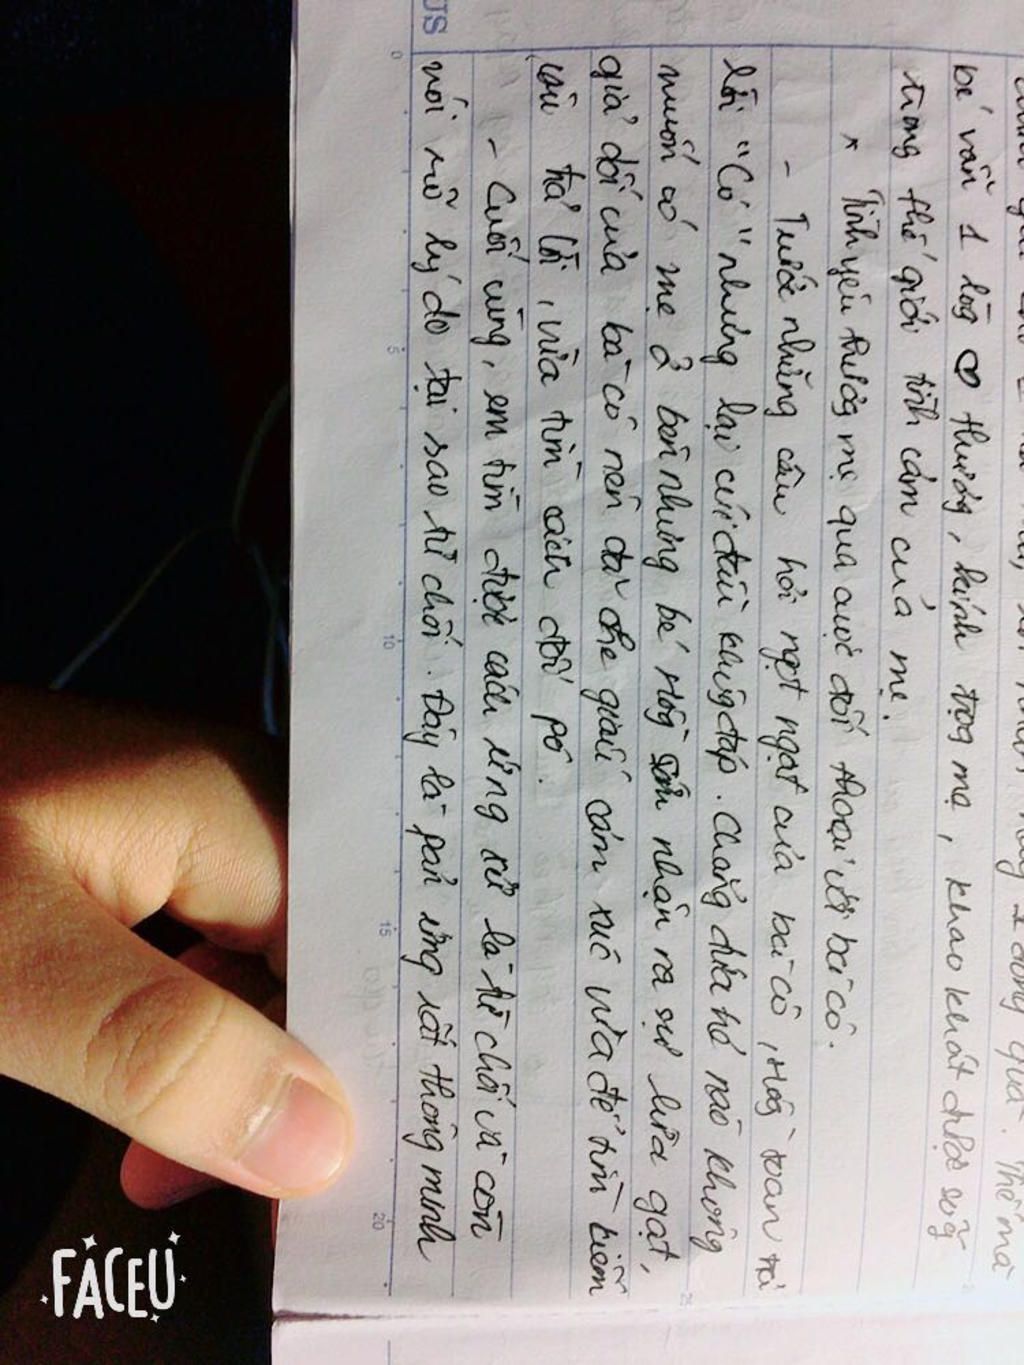 bé vẫn 1 lòg ♡ thươg, kính trọg mẹ, khao khát được sốg
trong thế giới tình cảm của mẹ.
* Tình yêu thươg mẹ qua cuộc đối thoại với bà cô.
- Trước những câu hỏi ngọt ngạt của bà cô, Hồg toan trả
lời "Có" nhưng lại cúi đầu khôg đáp. Chẳng đứa trẻ nào không
muốn có mẹ ở bên nhưng bé Hồg sớm nhận ra sự lừa gạt,
giả dối của bà cô nên đã che giấu cảm xúc vừa để tìm kiếm
câu trả lời, vừa tìm cách đối pó.
- Cuối cùng, em tìm được cách ứng xử là từ chối và còn
nói rõ lý do tại sao từ chối. Đây là pản ứng rất thông minh
US
0 5 10 15 20
FACEU